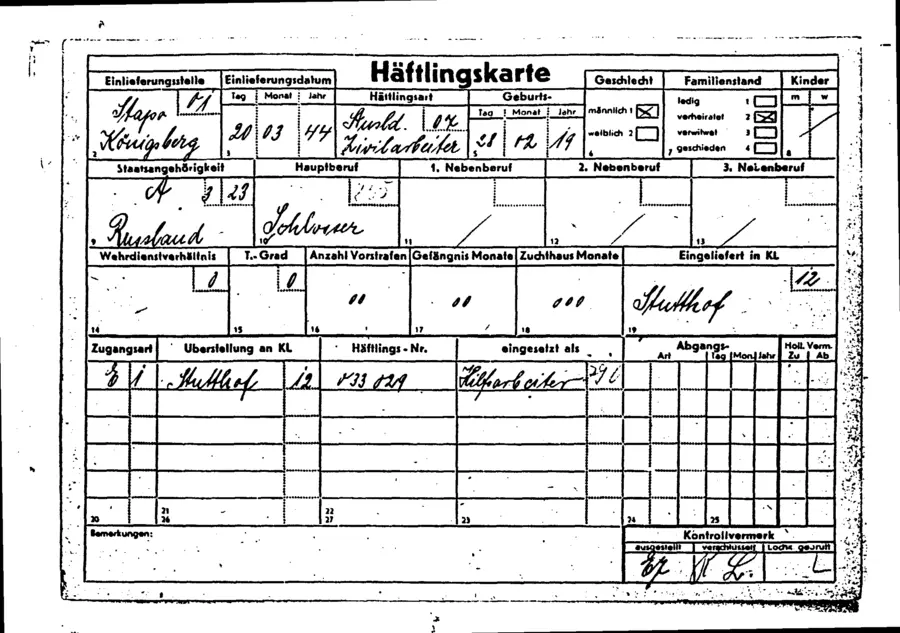 Häftlingskarte
Einlieferungsstelle Einlieferungsdatum Häftlingsart Geburts- Geschlecht Familienstand Kinder
Tag Monat Jahr Tag Monat Jahr m w
01
Stapo
Königsberg
2
20 03 44
3
Ausl. 07
Zivilarbeiter
28 02 19
5
männlich 1
weiblich 2
6
ledig 1
verheiratet 2
verwitwet 3
geschieden 4
7
8
Staatsangehörigkeit Hauptberuf 1. Nebenberuf 2. Nebenberuf 3. Nebenberuf
3 23
Russland Schlosser
9 10 11 12 13
Wehrdienstverhältnis T.-Grad Anzahl Vorstrafen Gefängnis Monate Zuchthaus Monate Eingeliefert in KL
0 0 00 00 000 Stutthof 12
14 15 16 17 18 19
Zugangsart Überstellung an KL Häftlings-Nr. eingesetzt als Abgangs- Holl. Verm.
Art Tag Mon. Jahr Zu Ab
E 1 Stutthof 12 033 029 Hilfsarbeiter
20 21 22 23 24 25
26 27
Bemerkungen: Kontrollvermerk
ausgestellt verschlüsselt Lochk. geprüft
L